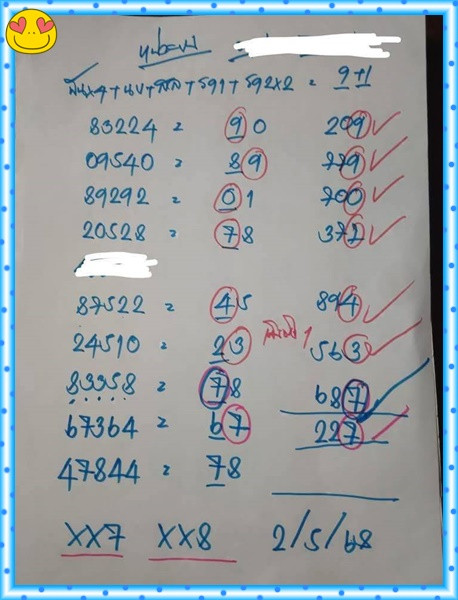 พัน×9+นบ+สิบ+รจ1+รจ2×2 = 9+1
83224 = 90 209 ✓
09540 = 89 779 ✓
89292 = 01 700 ✓
20528 = 78 371 ✓
87522 = 45 894 ✓
24510 = 23 563 ✓
83358 = 78 687 ✓
67364 = 67 227 ✓
47844 = 78
XX7 XX8 2/5/68